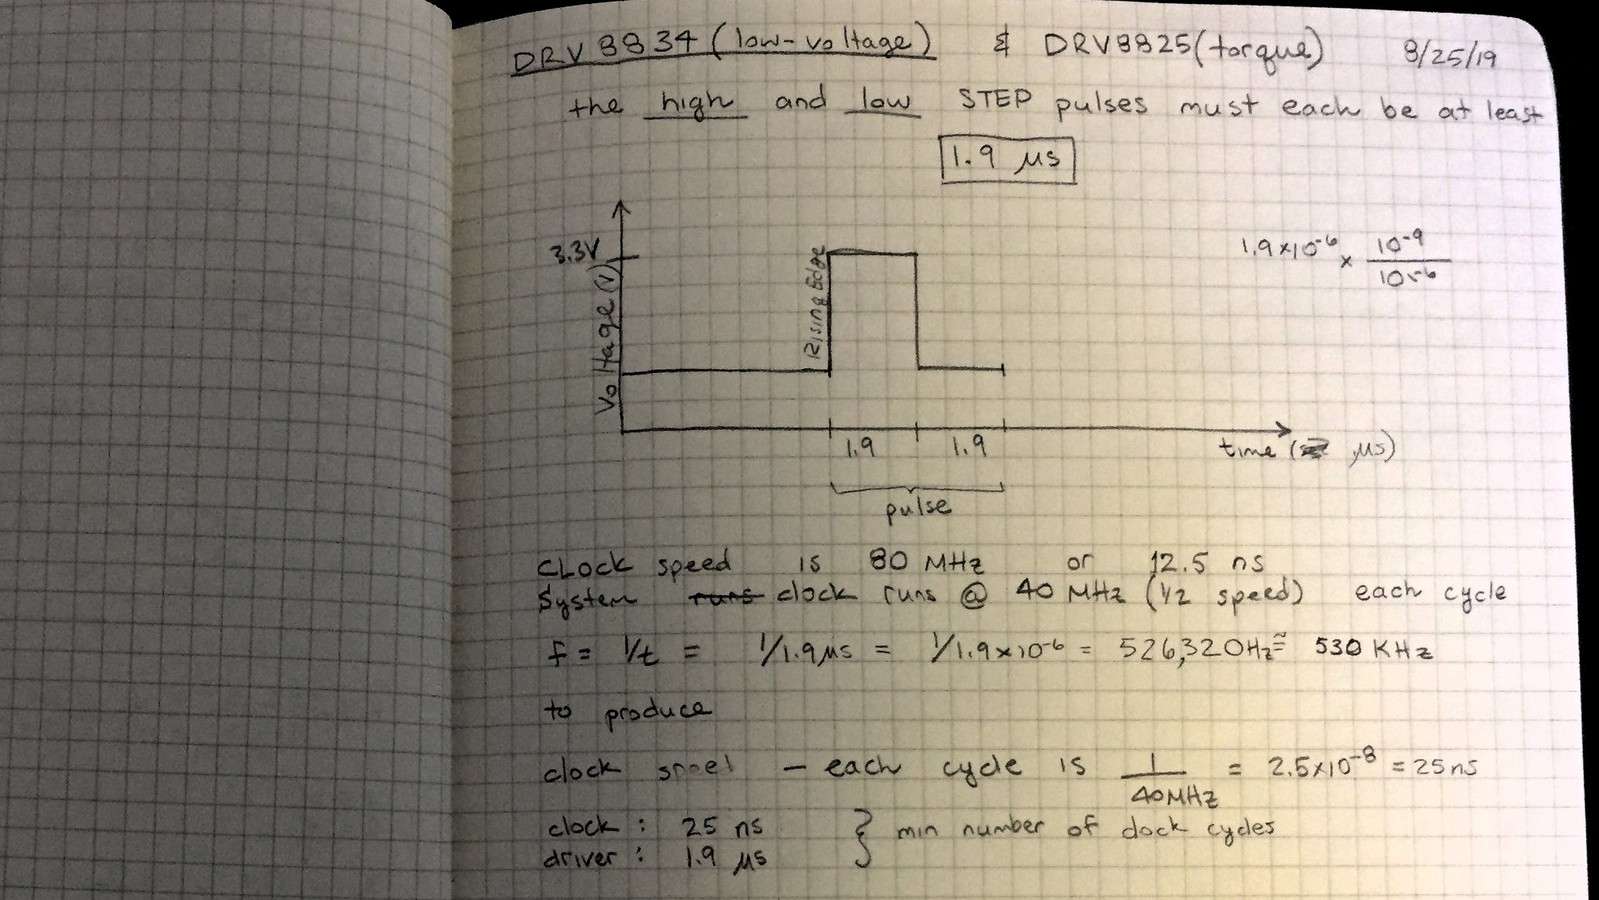 DRV8834 (low-voltage) & DRV8825 (torque) 8/25/19
the high and low STEP pulses must each be at least
1.9 µs
3.3V
Voltage (V)
Rising Edge
1.9×10⁻⁶ × 10⁻⁹ / 10⁻⁶
1.9 1.9
time ( µs)
pulse
Clock speed is 80 MHz or 12.5 ns
System runs clock runs @ 40 MHz (1/2 speed) each cycle
f = 1/t = 1/1.9µs = 1/1.9×10⁻⁶ = 526,320Hz ≅ 530 KHz
to produce
clock speed — each cycle is 1/40MHz = 2.5×10⁻⁸ = 25ns
clock : 25 ns } min number of clock cycles
driver : 1.9 µs